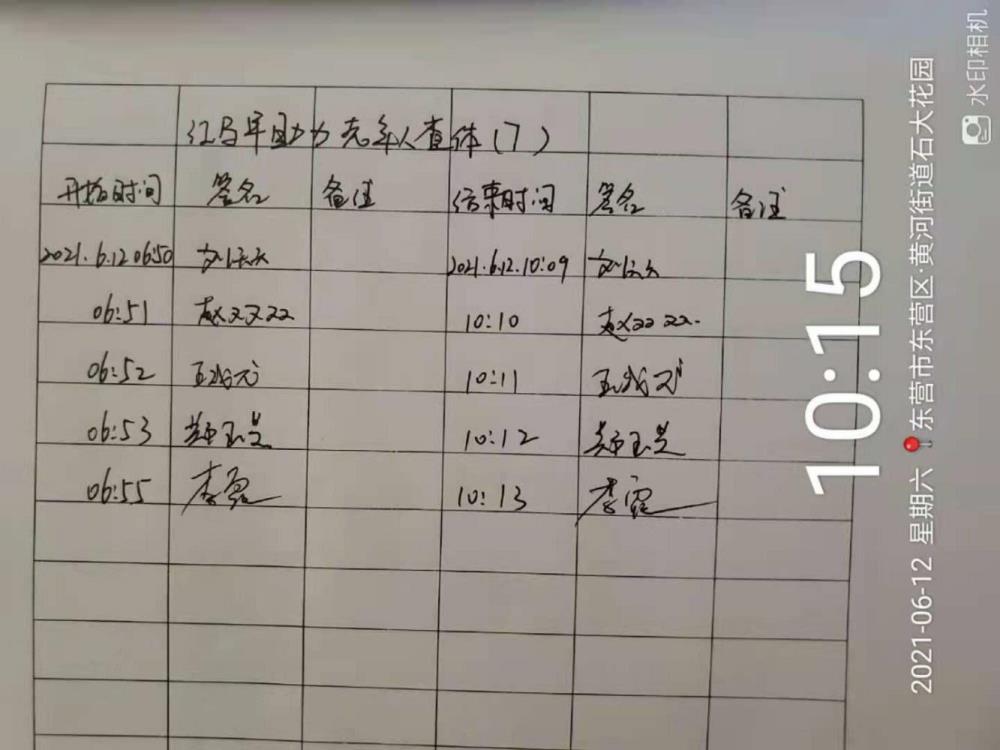 红马甲助力老年人查体(7)
开始时间 签名 备注 结束时间 签名 备注
2021.6.12 06:50 2021.6.12.10:09
06:51 赵双双 10:10 赵双双
06:52 10:11
06:53 郑玉兰 10:12 郑玉兰
06:55 李磊 10:13
10:15
2021-06-12 星期六 东营市东营区·黄河街道石大花园
水印相机